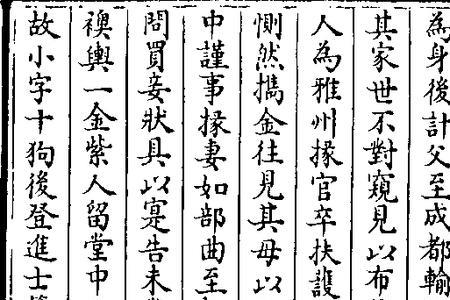 為身後計父至成都輸
其家世不對窺見以布
人為雅州掾官卒扶護
惻然攜金往見其母以
中謹事掾妻如部曲至
問買妾狀具以寔告未
襆輿一金紫人留堂中
故小字十狗後登進士